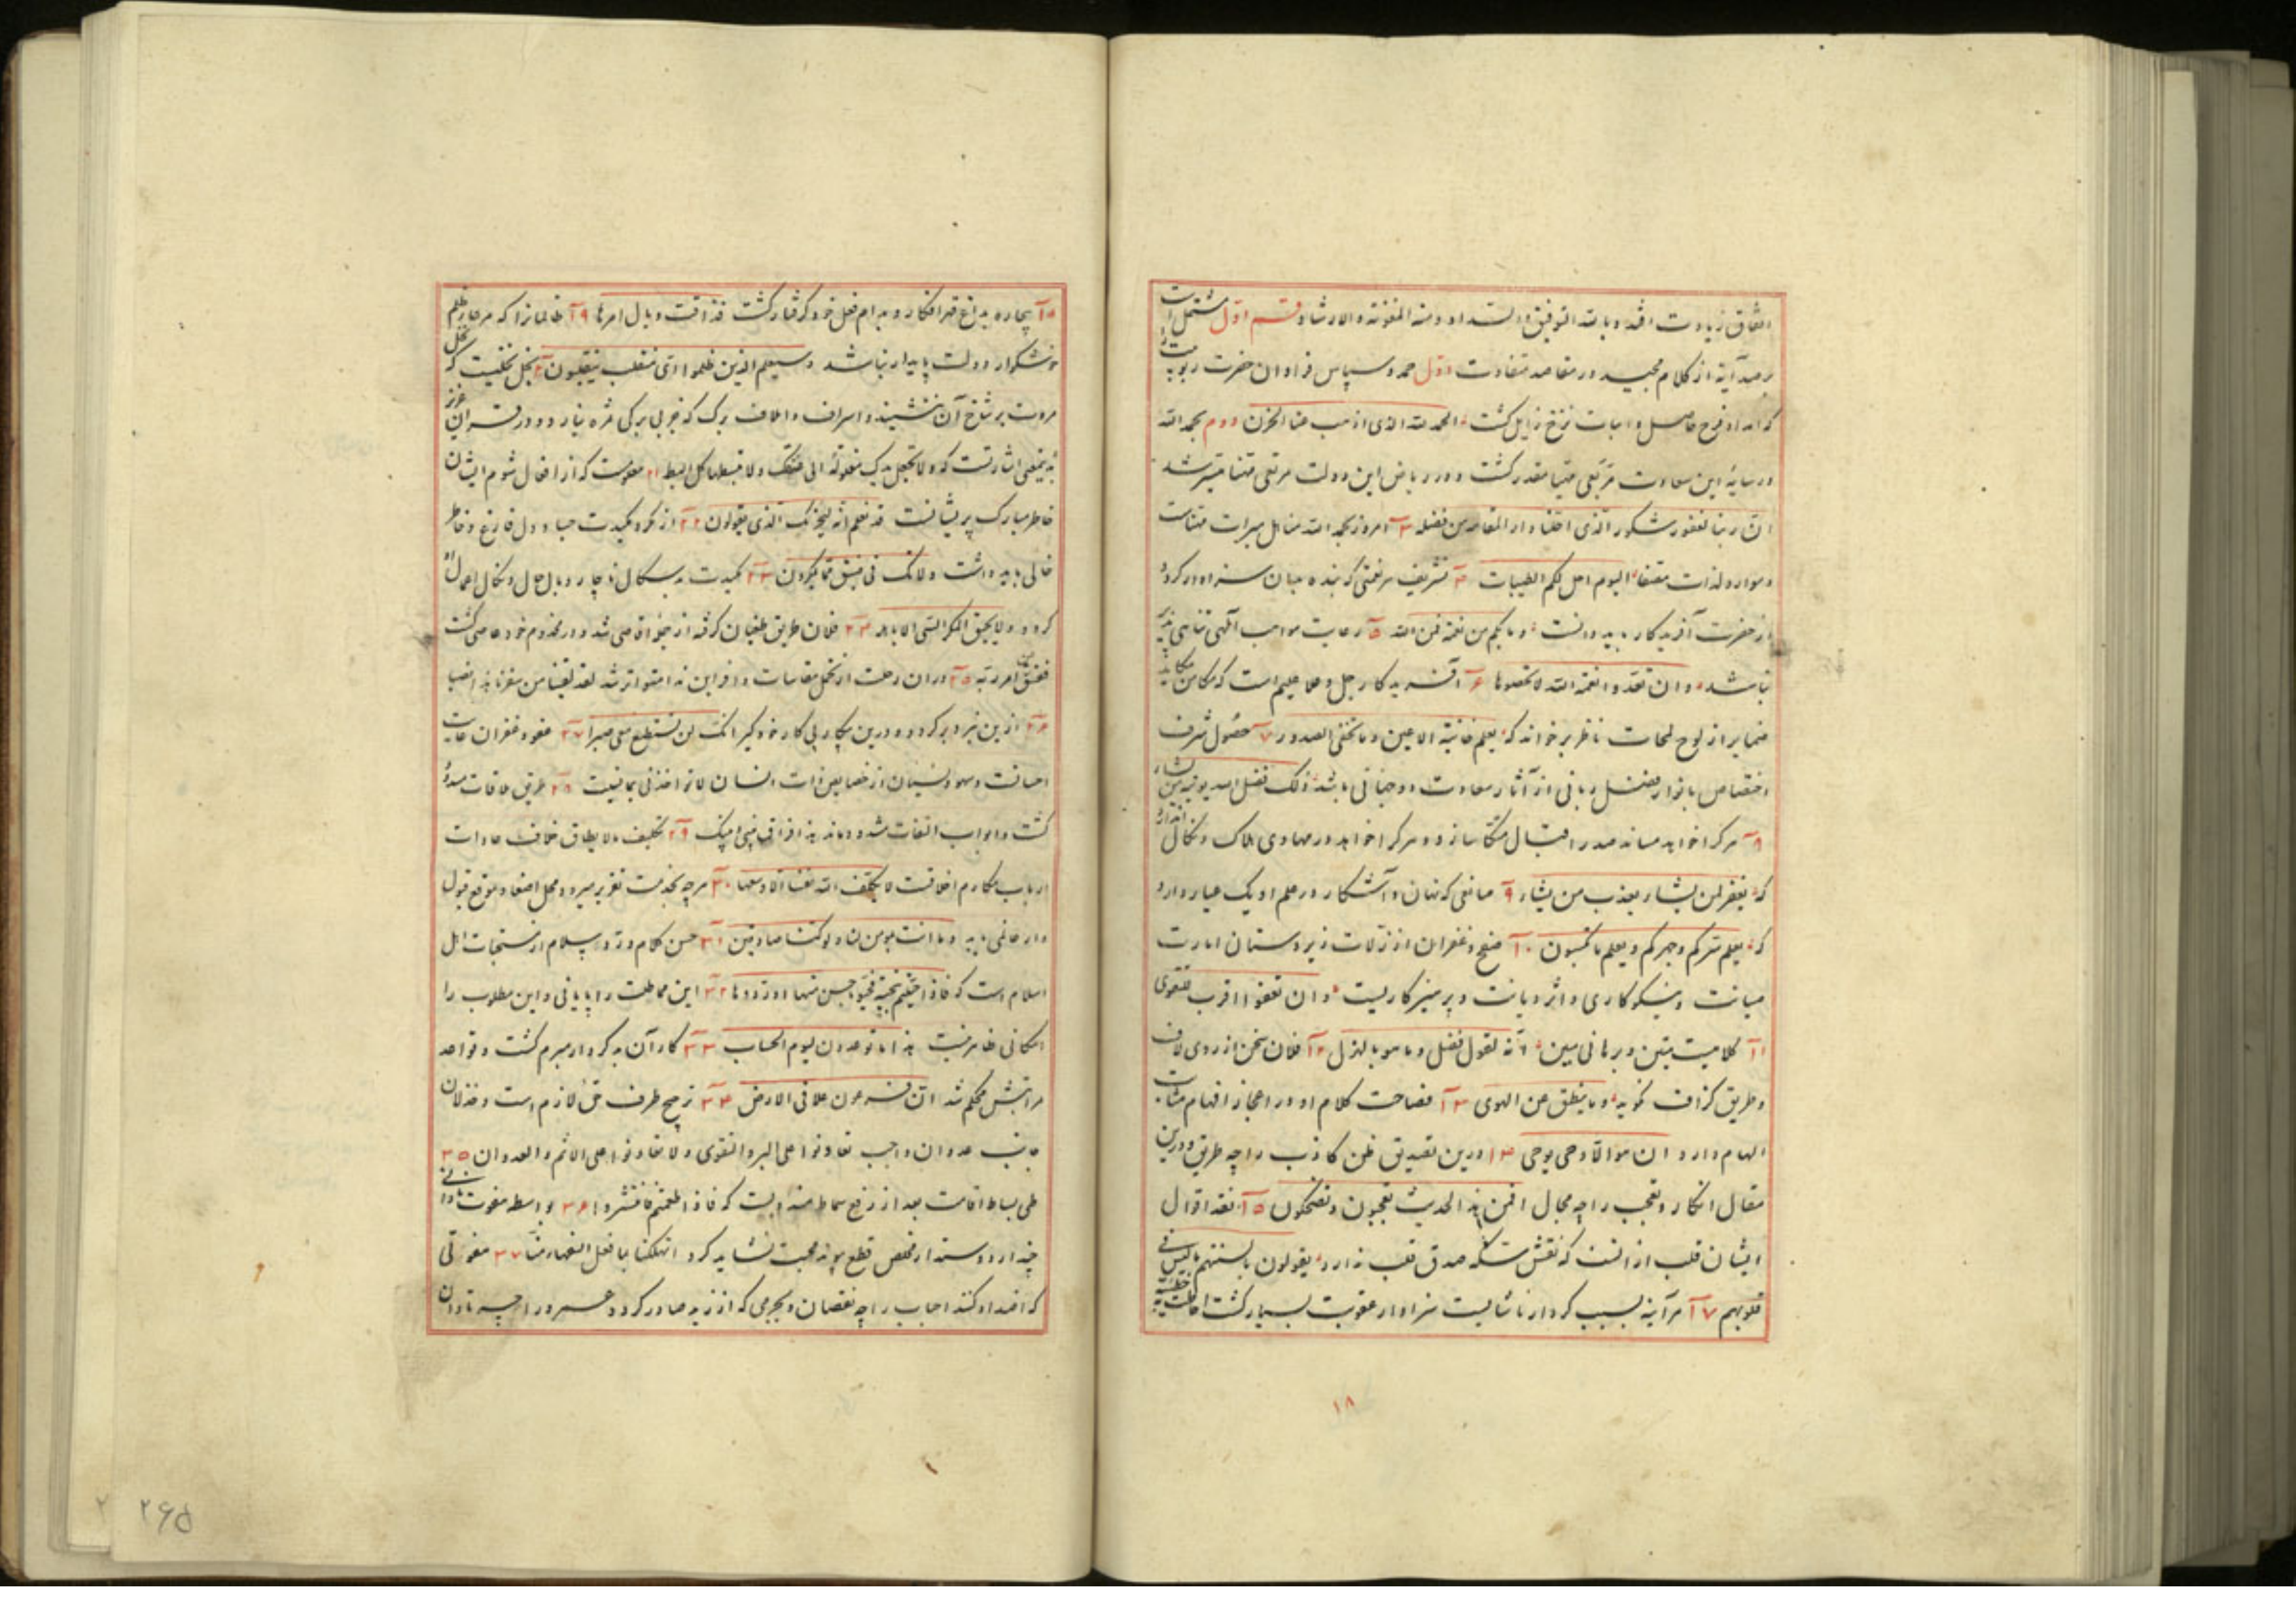 اتفاق زیادت افتد و بالله التوفیق و السداد و منه المغوثه و الارشاد قسم اول مشتمل است
بر صد آیه از کلام مجید در مقاصد متفاوت اول حمد و سپاس فراوان حضرت ربوبیت را
که امداد فرح حاصل و اسباب ترح زایل گشت الحمد لله الذی اذهب عنا الحزن دوم بحمد الله
در سایه این سعادت مرتعی مهیا مقدر گشت و در ریاض این دولت مرتقی مهنا میسر شد
ان ربنا لغفور شکور الذی احلنا دار المقامه من فضله ۳ امروز بحمد الله مناهل مبرات مهناست
و موارد لذات مصفا الیوم احل لکم الطیبات ۴ تشریف هر نعمتی که بنده بدان سزاوار گردد
از حضرت آفریدگار باید دانست و ما بکم من نعمة فمن الله ۵ رعایت مواهب الهی تناهی پذیر
نباشد و ان تعدوا نعمة الله لا تحصوها ۶ آفریدگار جل و علا علیم است که مکامن مکاید
ضمایر از لوح لمحات ناظر برخواند که یعلم خائنة الاعین و ما تخفی الصدور ۷ حصول شرف
اختصاص بانوار فضل ربانی از آثار سعادت دو جهانی باشد ذلک فضل الله یوتیه من یشاء
۸ هر کرا خواهد مساند صدر اقبال متکا سازد و هر کرا خواهد در مهاوی هلاک و نکال اندازد
که یغفر لمن یشاء و یعذب من یشاء ۹ صانعی که نهان و آشکار در علم او یک عیار دارد
که یعلم سرکم و جهرکم و یعلم ما تکسبون ۱۰ صفح و غفران از زلات زیردستان امارت
صیانت و نیکوکاری و اثر دیانت و پرهیزکاریست و ان تعفوا اقرب للتقوی
۱۱ کلامیست متین و برهانی مبین انه لقول فصل و ما هو بالهزل ۱۲ فلان سخن از روی لاف
و طریق گزاف نگوید و ما ینطق عن الهوی ۱۳ فصاحت کلام او در اعجاز افهام مشابهت
الهام دارد ان هو الا وحی یوحی ۱۴ درین تصدیق ظن کاذب را چه طریق و درین
مقال انکار و تعجب را چه مجال افمن هذا الحدیث تعجبون و تضحکون ۱۵ نقد اقوال
ایشان قلب ازانست که نقش سکه صدق قلب ندارد یقولون بالسنتهم ما لیس فی
قلوبهم ۱۷ هر آینه بسبب کردار ناشایست سزاوار عقوبت بسیار گشت احاطت به خطیئته
۱۸
۱۸ بیچاره بداغ قهر افکار و بدام فعل خود گرفتار گشت فذاقت وبال امرها ۱۹ ظالمانرا که مرعاء ظلم
خوشگوار و دولت پایدار نباشد و سیعلم الذین ظلموا ای منقلب ینقلبون ۲۰ بخل نخلیست که گل
مروت بر شاخ آن ننشیند و اسراف و اتلاف برگ که جز بی برگی ثمره نیارد و در قرآن عزیز
بدینمعنی اشارتست که و لا تجعل یدک مغلولة الی عنقک و لا تبسطها کل البسط ۲۱ معلومست که از افعال شوم ایشان
خاطر مبارک پریشانست قد نعلم انه لیحزنک الذی یقولون ۲۲ از مکر و مکیدت حساد دل فارغ و خاطر
خالی باید داشت و لا تک فی ضیق مما یمکرون ۲۳ مکیدت بدسگال ناچار وبال حال و نکال اعمال او
گردد و لا یحیق المکر السیئ الا باهله ۲۴ فلان طریق طغیان گرفته از خیر قاصی شد و از مخدوم خود عاصی گشت
ففسق عن امر ربه ۲۵ دران رحلت از تحمل مقاسات وافر این ندا متواتر شد لقد لقینا من سفرنا هذا نصبا
۲۶ ازین نبرد برگرد و درین پیکار پی کار خود گیر انک لن تستطیع معی صبرا ۲۷ عفو و غفران غایت
احسانست و سهو و نسیان از خصایص ذات انسان لا تؤاخذنی بما نسیت ۲۸ طریق ملاقات مسدود
گشت و ابواب التفات مسدود ماند هذا فراق بینی و بینک ۲۹ تکلیف ما لا یطاق خلاف عادات
ارباب مکارم اخلاقست لا یکلف الله نفسا الا وسعها ۳۰ هر چه بخدمت تقریر میرود محل اصغا و موقع قبول
دار عاصی یابد و ما انت بمؤمن لنا و لو کنا صادقین ۳۱ حسن کلام و رد سلام از مستحبات اهل
اسلام است که فاذا حییتم بتحیة فحیوا باحسن منها او ردوها ۳۲ این مماطلت را پایانی و این مطلوب را
امکانی ظاهر نیست هذا ما توعدون لیوم الحساب ۳۳ کار آن بدکردار مبرم گشت و قواعد
مراتبش محکم شد ان فرعون علا فی الارض ۳۴ ترجیح طرف حق لازم است و خذلان
جانب عدوان واجب تعاونوا علی البر و التقوی و لا تعاونوا علی الاثم و العدوان ۳۵
طی بساط اقامت بعد از رفع سماط سنت است که فاذا طعمتم فانتشروا ۳۶ بواسطه هفوت نادانی
چند از دوستدار مخلص قطع پیوند محبت نشاید کرد اتهلکنا بما فعل السفهاء منا ۳۷ هفوتی
که اضداد کنند احباب را چه نقصان و بجرمی که از زید صادر گردد عمرو را چه تاوان
۲۶۵